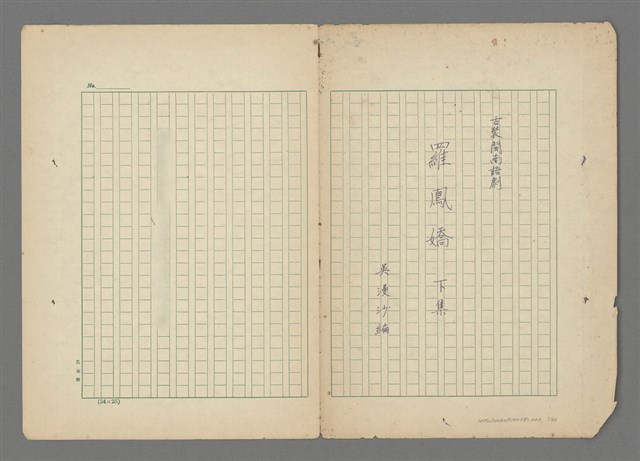 古裝閩南語劇
羅鳳嬌 下集
吳漫沙編
No.
(24×25)